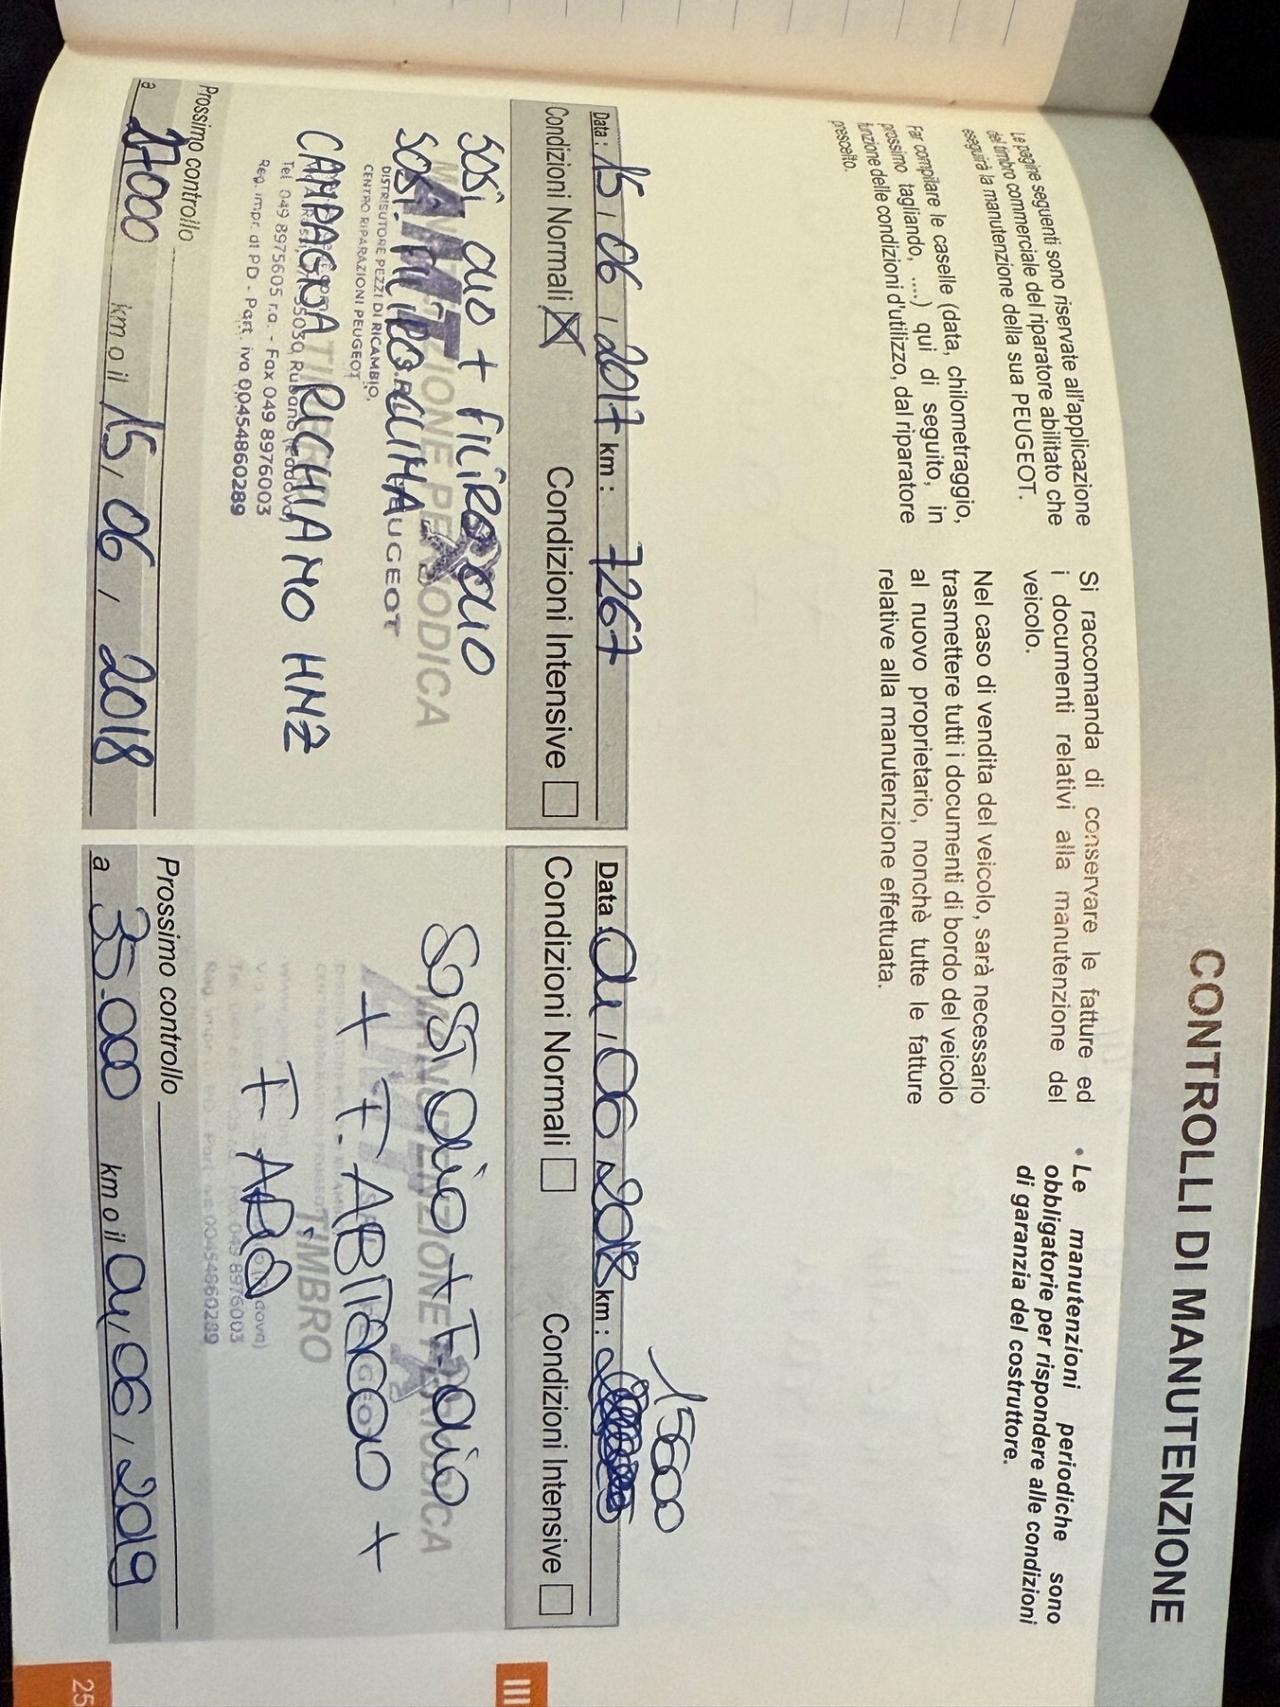 CONTROLLI DI MANUTENZIONE
Le pagine seguenti sono riservate all'applicazione
del timbro commerciale del riparatore abilitato che
eseguirà la manutenzione della sua PEUGEOT.
Far compilare le caselle (data, chilometraggio,
prossimo tagliando, ....) qui di seguito, in
funzione delle condizioni d'utilizzo, dal riparatore
prescelto.
Si raccomanda di conservare le fatture ed
i documenti relativi alla manutenzione del
veicolo.
Nel caso di vendita del veicolo, sarà necessario
trasmettere tutti i documenti di bordo del veicolo
al nuovo proprietario, nonchè tutte le fatture
relative alla manutenzione effettuata.
• Le manutenzioni periodiche sono
obbligatorie per rispondere alle condizioni
di garanzia del costruttore.
Data: 15, 06, 2017 km: 7267
Condizioni Normali Condizioni Intensive
MANUTENZIONE PERIODICA
SOST. FILTRO
PEUGEOT
DISTRIBUTORE PEZZI DI RICAMBIO,
CENTRO RIPARAZIONI PEUGEOT
CAMPAGNA RICHIAMO HNZ
35030 Rubano (Padova)
Tel. 049 8975605 r.a. - Fax 049 8976003
Reg. impr. di PD - Part. iva 00454860289
Prossimo controllo
a 27000 km o il 15, 06, 2018
15600
Data: 06 2018 km:
Condizioni Normali Condizioni Intensive
MANUTENZIONE PERIODICA
SOST Olio + F. olio
+ F. ABITACOLO +
TIMBRO
F ARIA
Prossimo controllo
a 35.000 km o il 06, 2019
III
25